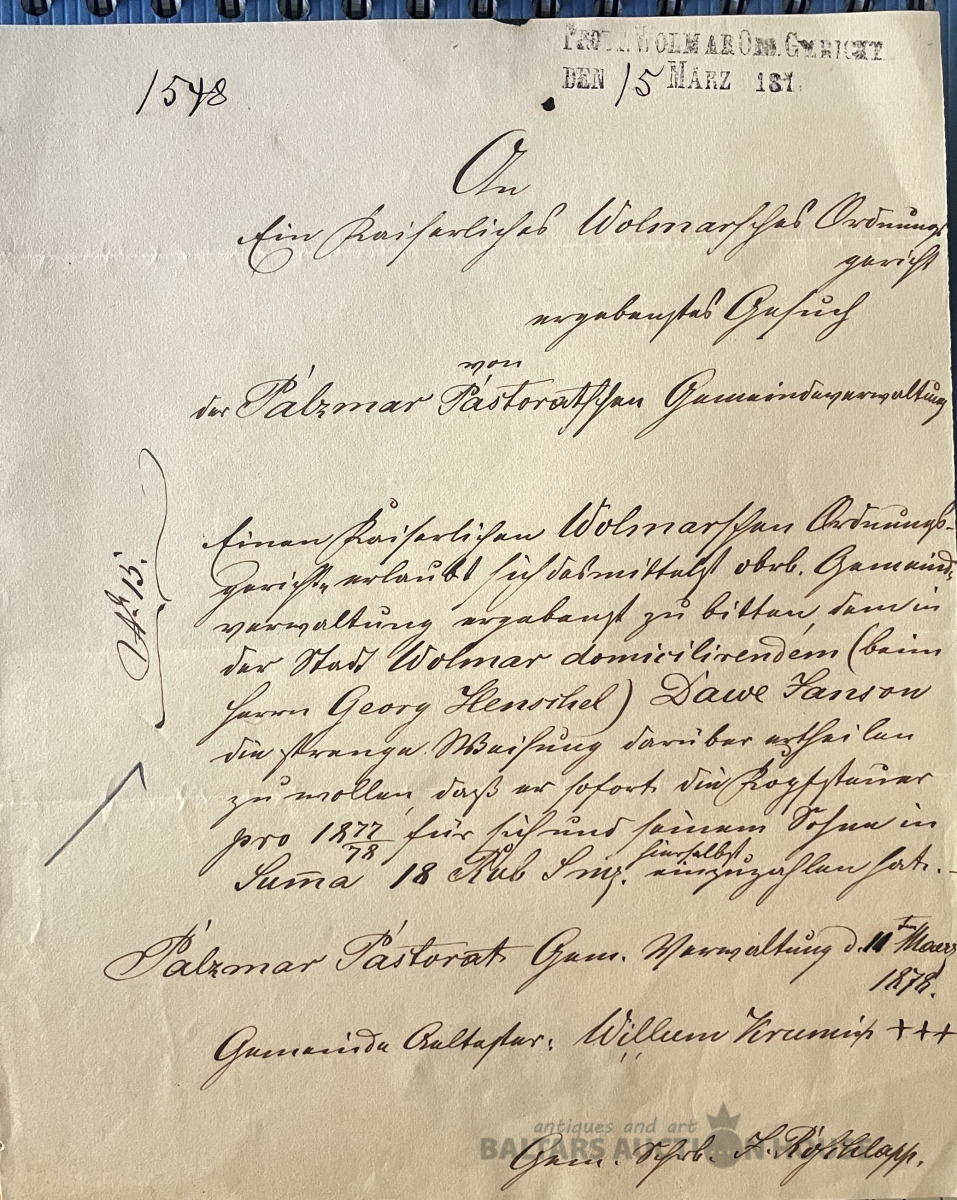 PROD. WOLMAR ORD. GERICHT
1548
DEN 15 MÄRZ 187
An
Ein Kaiserliches Wolmarsches Ordnungs
gericht
ergebenstes Gesuch
von
der Palzmar Pastoratschen Gemeindeverwaltung
No 15.
Einen Kaiserlichen Wolmarschen Ordnungs-
gericht, erlaubt sich desmittelst obrb. Gemeinde
verwaltung ergebenst zu bitten, dem in
der Stadt Wolmar domicilirendem (beim
Herrn Georg Henschel) Dawe Janson
die strenge Weisung darüber ertheilen
zu wollen, daß er sofort die Kopfsteuer
pro 1877/78 für sich und seinem Sohne in
Suma 18 Rub S hierselbst einzuzahlen hat. -
Palzmar Pastorat Gem. Verwaltung d. 11ten Maerz
1878.
Gemeinde Aeltester: Willum +++
antiques and art
BALTARS AUCTION HOUSE
Gem. Schrb. J.